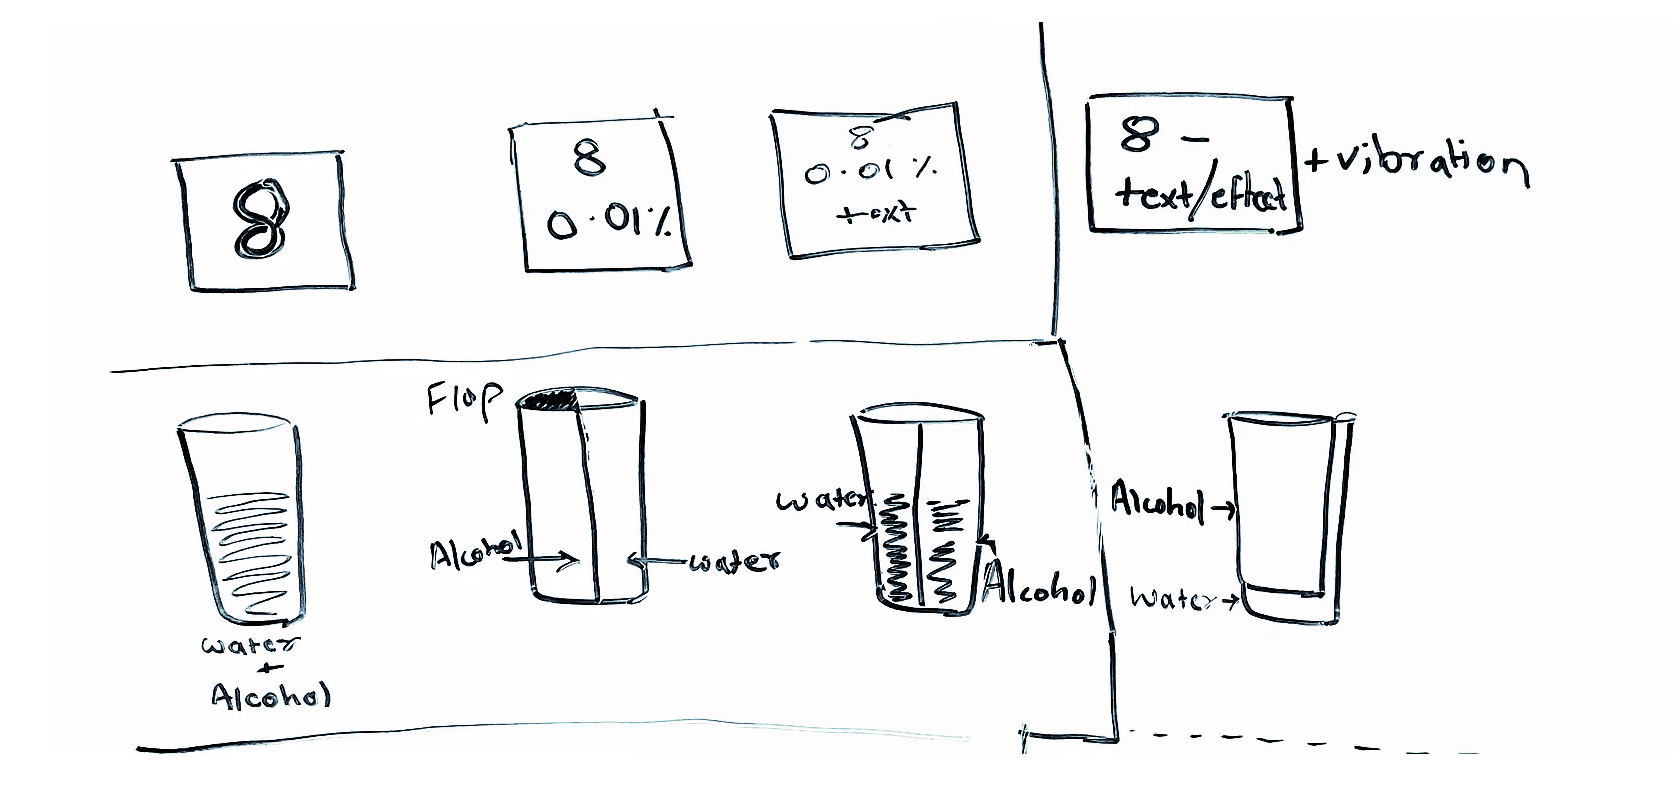 8
8
0.01%
8
0.01%
text
8 -
text/effect
+ vibration
water
+
Alcohol
Flap
Alcohol
water
water
Alcohol
Alcohol
water